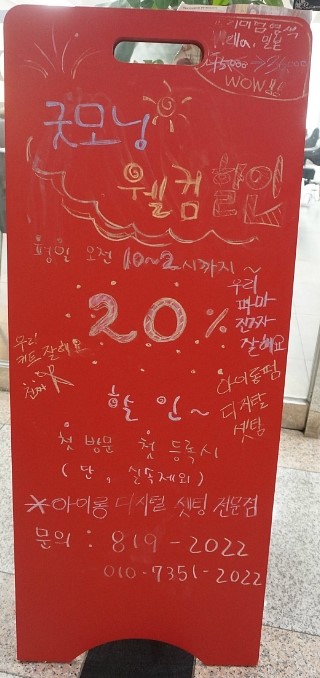 프리미엄 염색
Wella. 일본
45000 →
WOW!!
굿모닝
웰컴 할인
평일 오전 10~2시까지~
20%
우리
파마
진짜
잘해요
우리
커트 잘해요
진짜
할인~
아이롱펌
디지털
셋팅
첫 방문 첫 등록시
(단, 실속제외)
*아이롱 디지털 셋팅 전문점
문의 : 819-2022
010-7351-2022